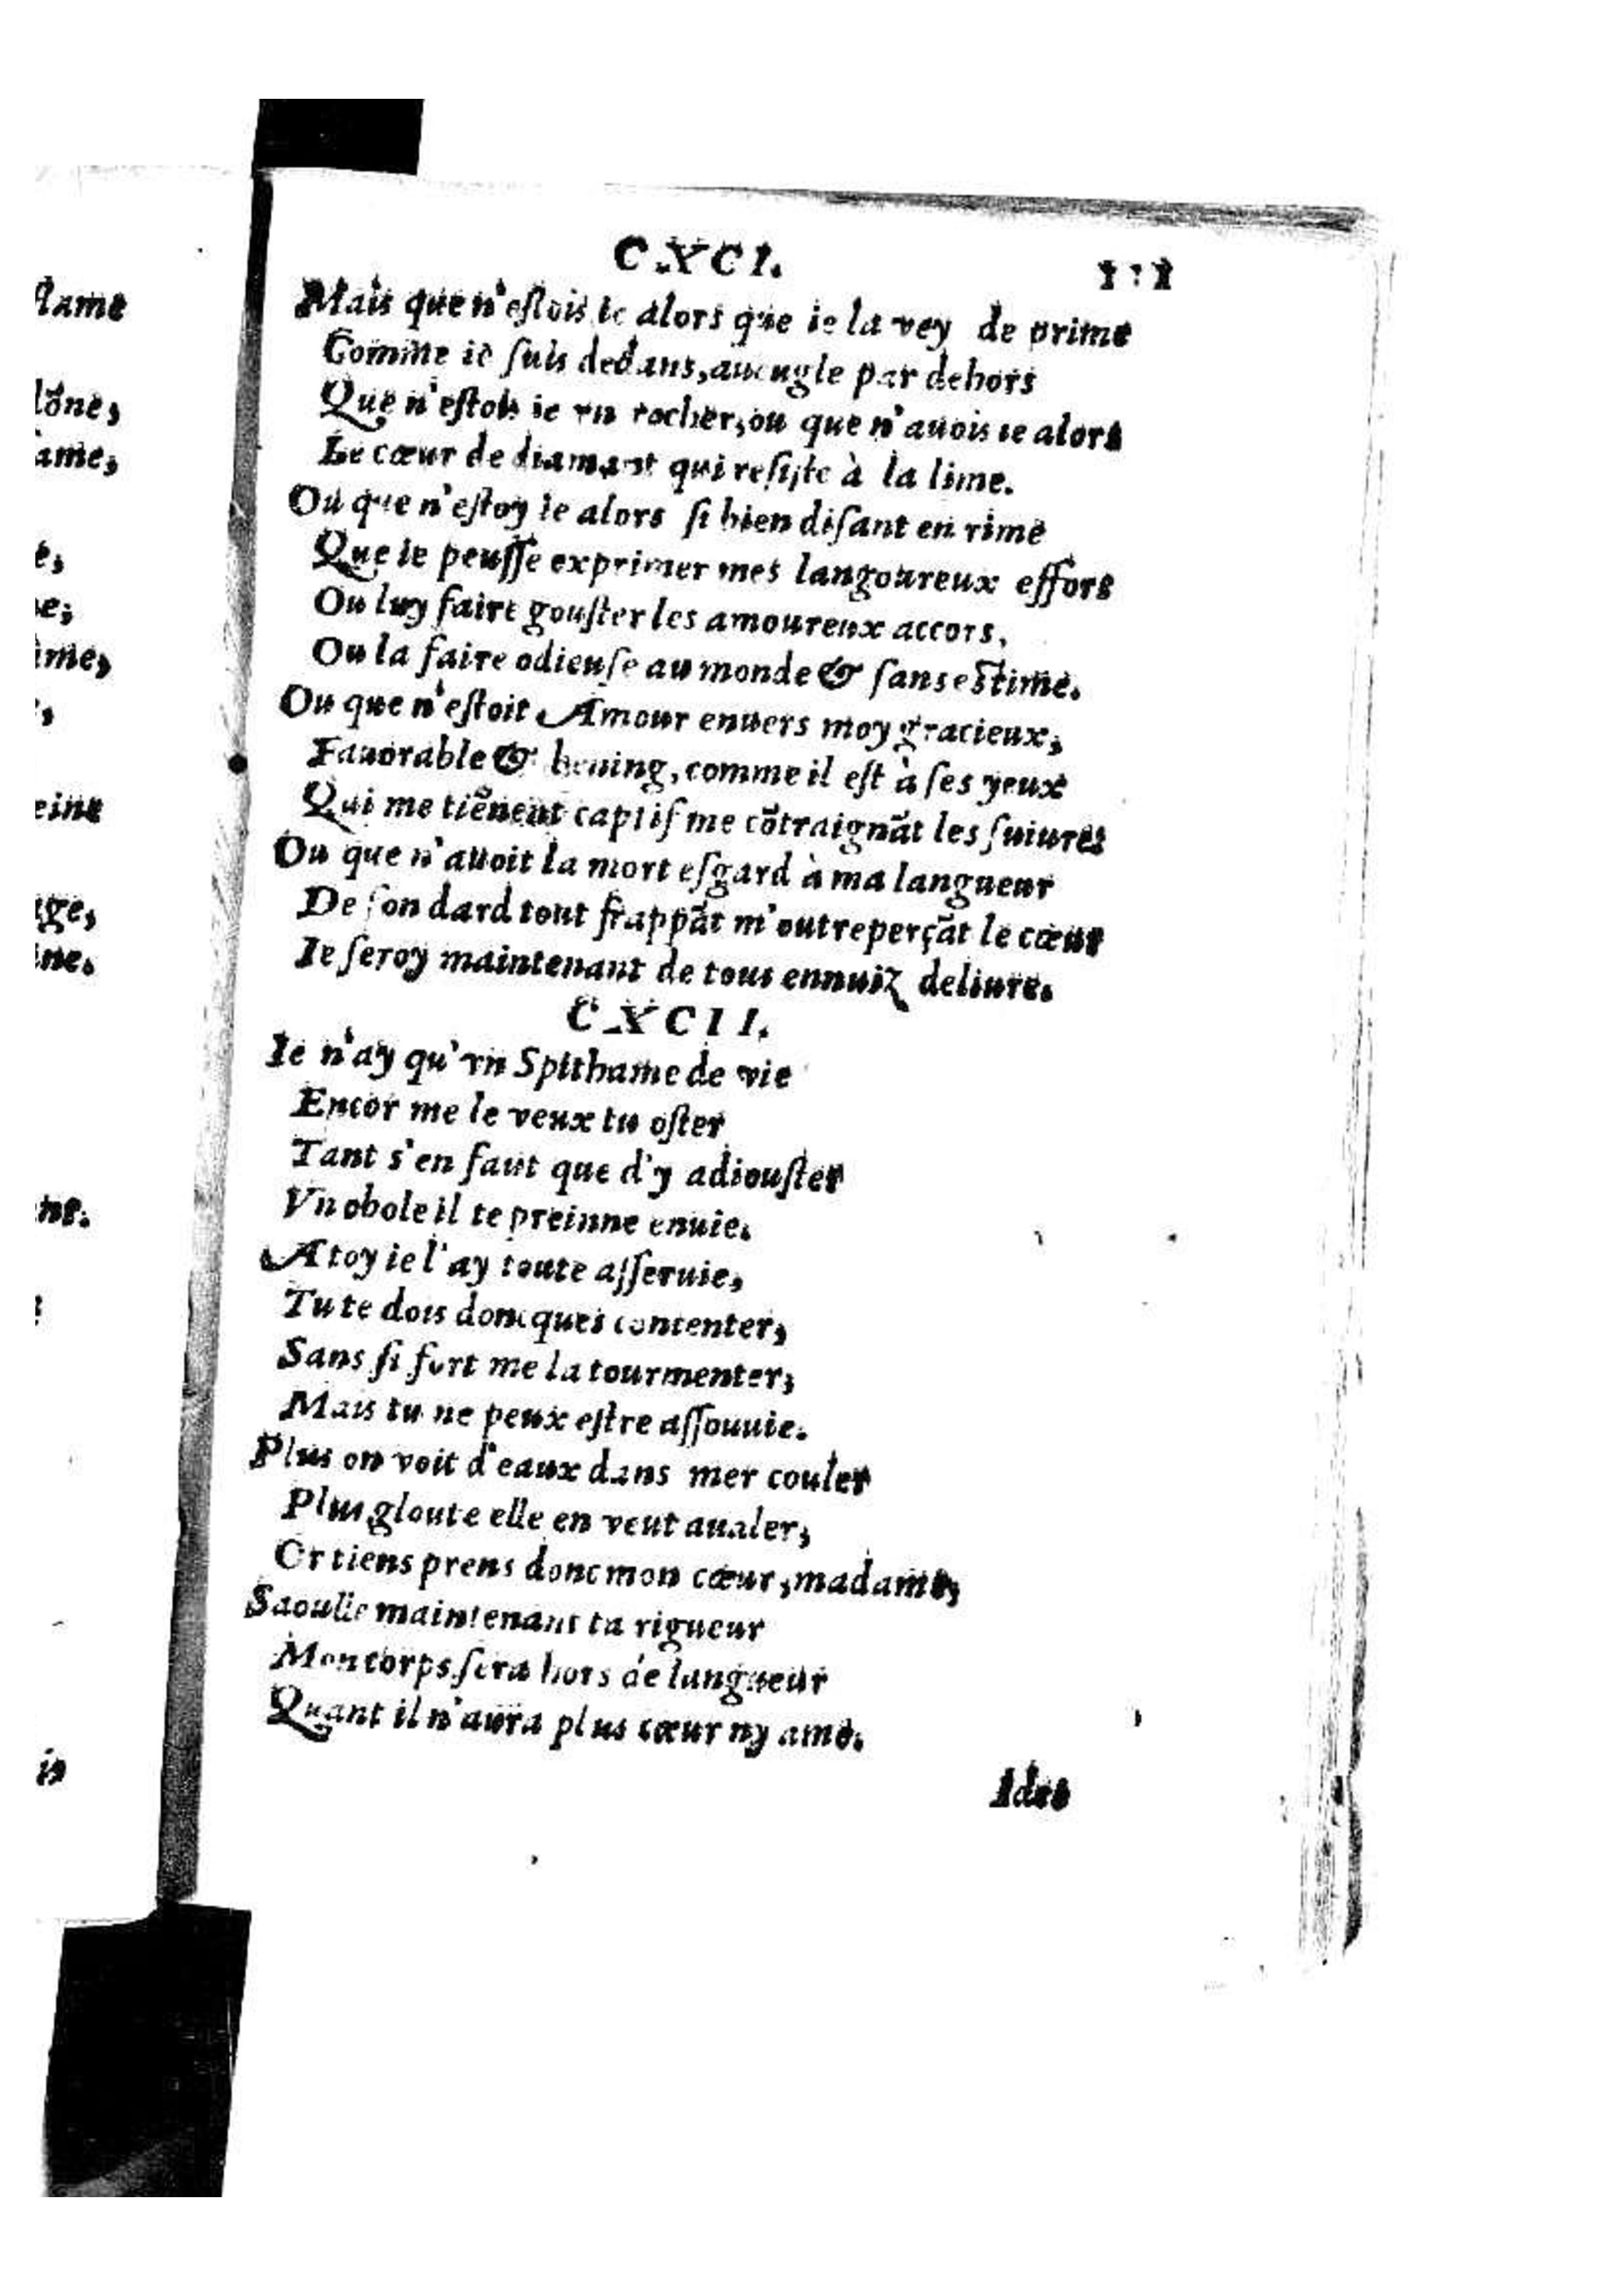 CXCI.
Mais que n'estois ie alors que ie la vey de prime
Comme ie suis dedans, aueugle par dehors
Que n'estois ie vn rocher, ou que n'auois ie alors
Le cœur de diamant qui resiste à la lime.
Ou que n'estoy ie alors si bien disant en rime
Que ie peusse exprimer mes langoureux effors
Ou luy faire gouster les amoureux accors,
Ou la faire odieuse au monde & sans estime.
Ou que n'estoit Amour enuers moy gracieux,
Fauorable & bening, comme il est à ses yeux
Qui me tiẽnent captif me cõtraignãt les suiure:
Ou que n'auoit la mort esgard à ma langueur
De son dard tout frappãt m'outreperçãt le cœur
Ie seroy maintenant de tous ennuiz deliure.
CXCII.
Ie n'ay qu'vn Spithame de vie
Encor me le veux tu oster
Tant s'en faut que d'y adiouster
Vn obole il te preinne enuie.
A toy ie l'ay toute asseruie,
Tu te dois doncques contenter,
Sans si fort me la tourmenter,
Mais tu ne peux estre assouuie.
Plus on voit d'eaux dans mer couler
Plus gloute elle en veut aualer,
Or tiens prens donc mon cœur, madame,
Saoulle maintenant ta rigueur
Mon corps sera hors de langueur
Quant il n'aura plus cœur ny ame.